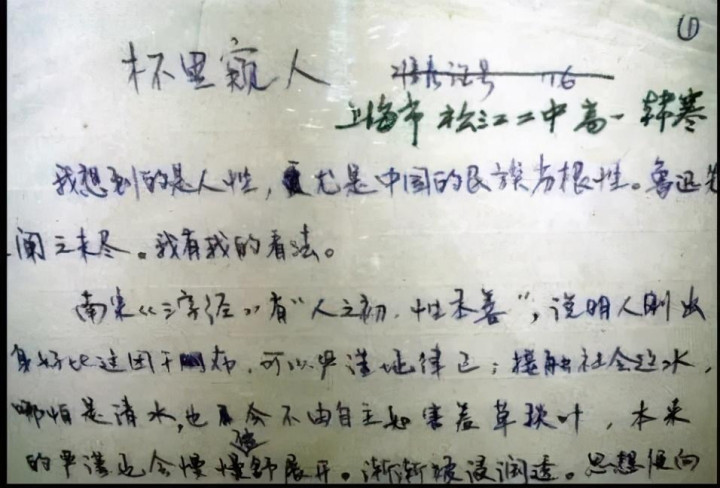 ①
杯里窥人 准考证号 116
上海市 松江二中 高一 韩寒
我想到的是人性,尤是中国的民族劣根性。鲁迅先
阐之未尽。我有我的看法。
南宋《三字经》有“人之初,性本善”,说明人刚出
身好比这团干布,可以严谨地律己;接触社会这水,
哪怕是清水,也会不由自主如害羞草叶,本来
的严谨也会慢慢地舒展开。渐渐被浸润透。思想便向